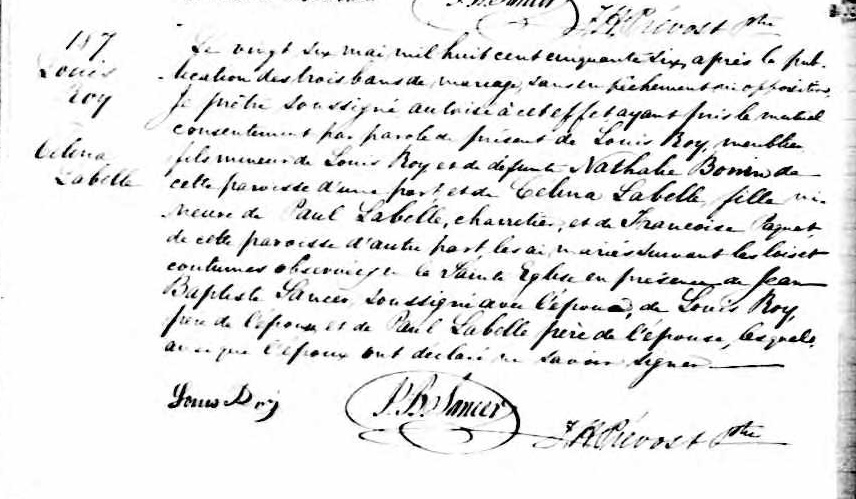 J. B. Sancer
J. H. Prévost Ptre
187
Louis
Roy
Celina
Labelle
Le vingt six mai, mil huit cent cinquante six, après la pub-
lication des trois bans de mariage, sans empêchement ni opposition,
Je prêtre soussigné autorisé à cet effet ayant pris le mutuel
consentement par parole de présent de Louis Roy, meublier,
fils mineur de Louis Roy et de défunte Nathalie Bonin de
cette paroisse d'une part, et de Celina Labelle, fille mi-
neure de Paul Labelle, charretier, et de Francoise Paquet,
de cette paroisse d'autre part, les ai mariés suivant les lois et
coutumes observées en la Sainte Eglise en présence de Jean
Baptiste Sancer, soussigné avec l'épou, de Louis Roy,
père de l'époux et de Paul Labelle père de l'épouse, lesquels
que l'époux ont déclaré ne savoir signer
Louis Roy
J. B. Sancer
J. H. Prévost Ptre